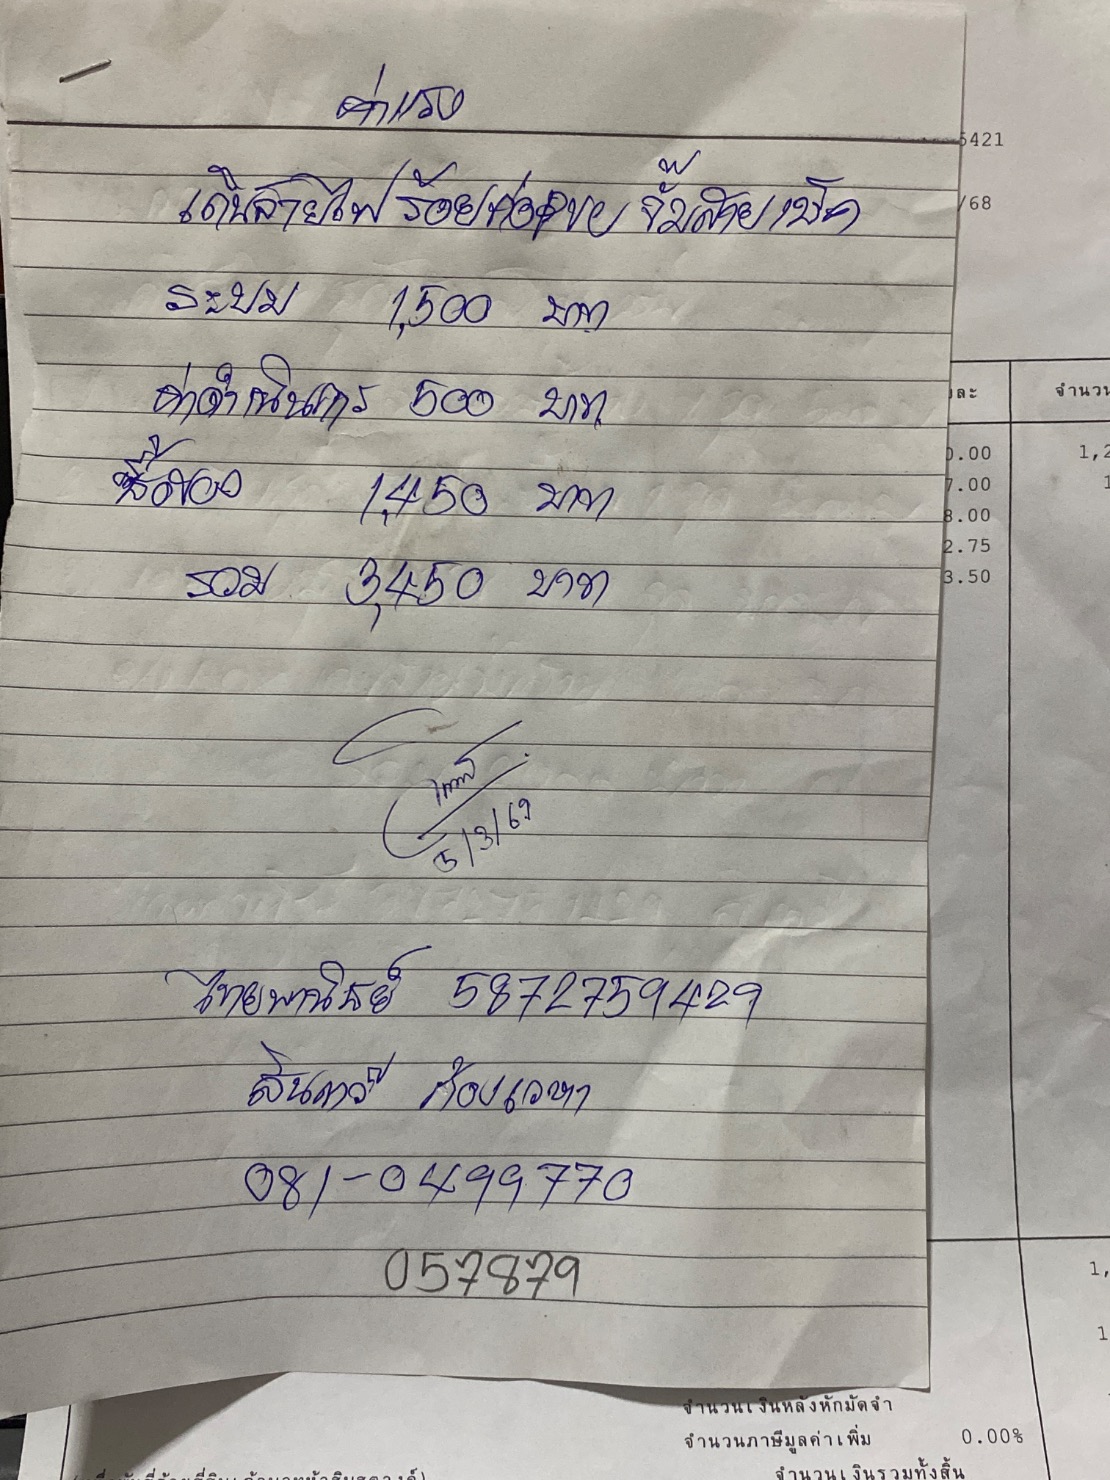 ค่าแรง
5421
เดินสายไฟ ร้อยท่อPVC จั้มสาย เช็ค
/68
ระบบ 1,500 บาท
ค่าดำเนินการ 500 บาท
ละ จำนวน
0.00 1,2
ซื้อของ 1,450 บาท
7.00 1
8.00
2.75
รวม 3,450 บาท
3.50
5/3/69
ไทยพาณิชย์ 5872759429
สินทวี ก้องเวหา
081-0499770
057879
1,
1
จำนวนเงินหลังหักมัดจำ
จำนวนภาษีมูลค่าเพิ่ม 0.00%
จำนวนเงินรวมทั้งสิ้น